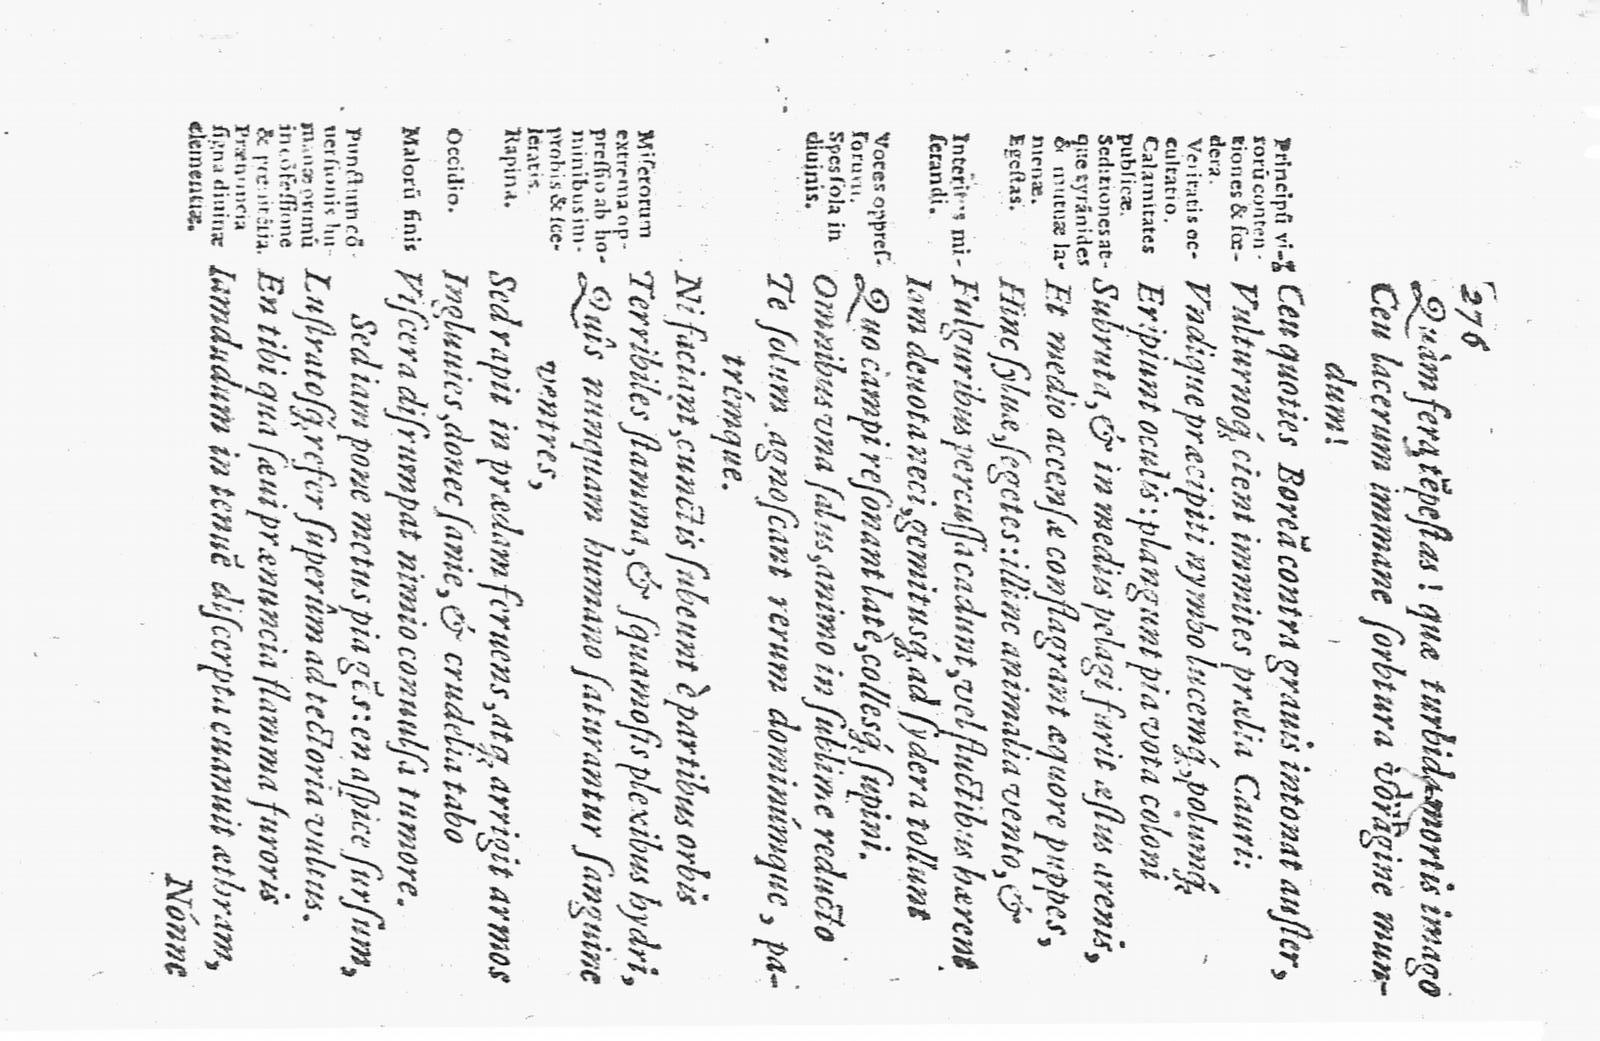 276
Quàm fera tẽpestas! quæ turbida mortis imago
Ceu lacerum immane sorbtura voragine mun-
dum!
Principũ vi-
rorũ conten-
tiones & fœ-
dera.
Veritatis oc-
cultatio.
Calamitates
publicæ.
Seditiones at-
que tyrãnides
& mutuæ la-
nienæ.
Egestas.
Interitus mi-
serandi.
Voces oppres-
sorum.
Spes sola in
diuinis.
Miserorum
extrema op-
pressio ab ho-
minibus im-
probis & sce-
leratis.
Rapina.
Occidio.
Malorũ finis
Punctum cõ-
uersionis hu-
manæ omniũ
in cõfessione
& pœnitẽtia.
Prænuncia
signa diuinæ
clementiæ.
Ceu quoties Boreã contra grauis intonat auster,
Vulturnoq; cient immites prælia Cauri:
Vndique præcipiti nymbo lucemq;, polumq;
Eripiunt oculis: plangunt pia vota coloni
Subruta, & in medis pelagi furit æstus arenis,
Et medio accensæ conflagrant æquore puppes,
Hinc syluæ, segetes: illinc animalia vento, &
Fulguribus percussa cadunt, vel fluctibus hærent
Iam deuota neci, gemitusq; ad sydera tollunt
Quo campi resonant latè, collesq; supini.
Omnibus vna salus, animo in sublime reducto
Te solum agnoscant rerum dominúmque, pa-
trémque.
Ni faciant, cunctis subeunt è partibus orbis
Terribiles flamma, & squamosis plexibus hydri,
Quîs nunquam humano saturantur sanguine
ventres,
Sed rapit in prædam feruens, atq; arrigit armos
Ingluuies, donec sanie, & crudelia tabo
Viscera disrumpat nimio conuulsa tumore.
Sed iam pone metus pia gẽs: en aspice sursum,
Lustratosq; refer superûm ad tectoria vultus.
En tibi qua sæui prænuncia flamma furoris
Iamdudum in tenuẽ discerpta euanuit æthram,
Nónne